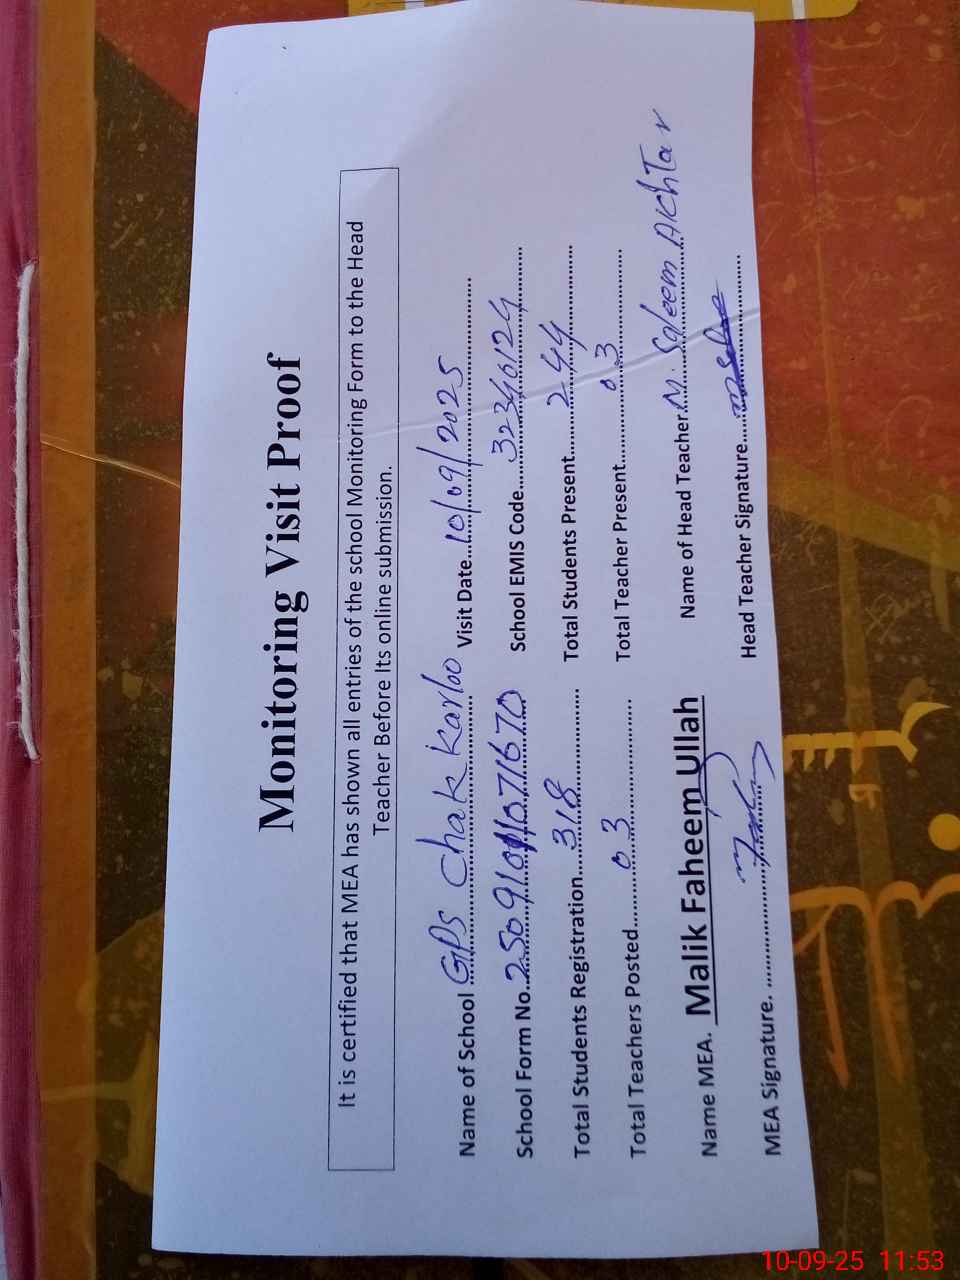 Monitoring Visit Proof
It is certified that MEA has shown all entries of the school Monitoring Form to the Head
Teacher Before Its online submission.
Name of School GPS Chak Karloo Visit Date 10/09/2025
School Form No. School EMIS Code 32340124
Total Students Registration 318 Total Students Present 244
Total Teachers Posted 03 Total Teacher Present 03
Name MEA. Malik Faheem Ullah Name of Head Teacher. M. Saleem Akhtar
MEA Signature. Head Teacher Signature
10-09-25 11:53